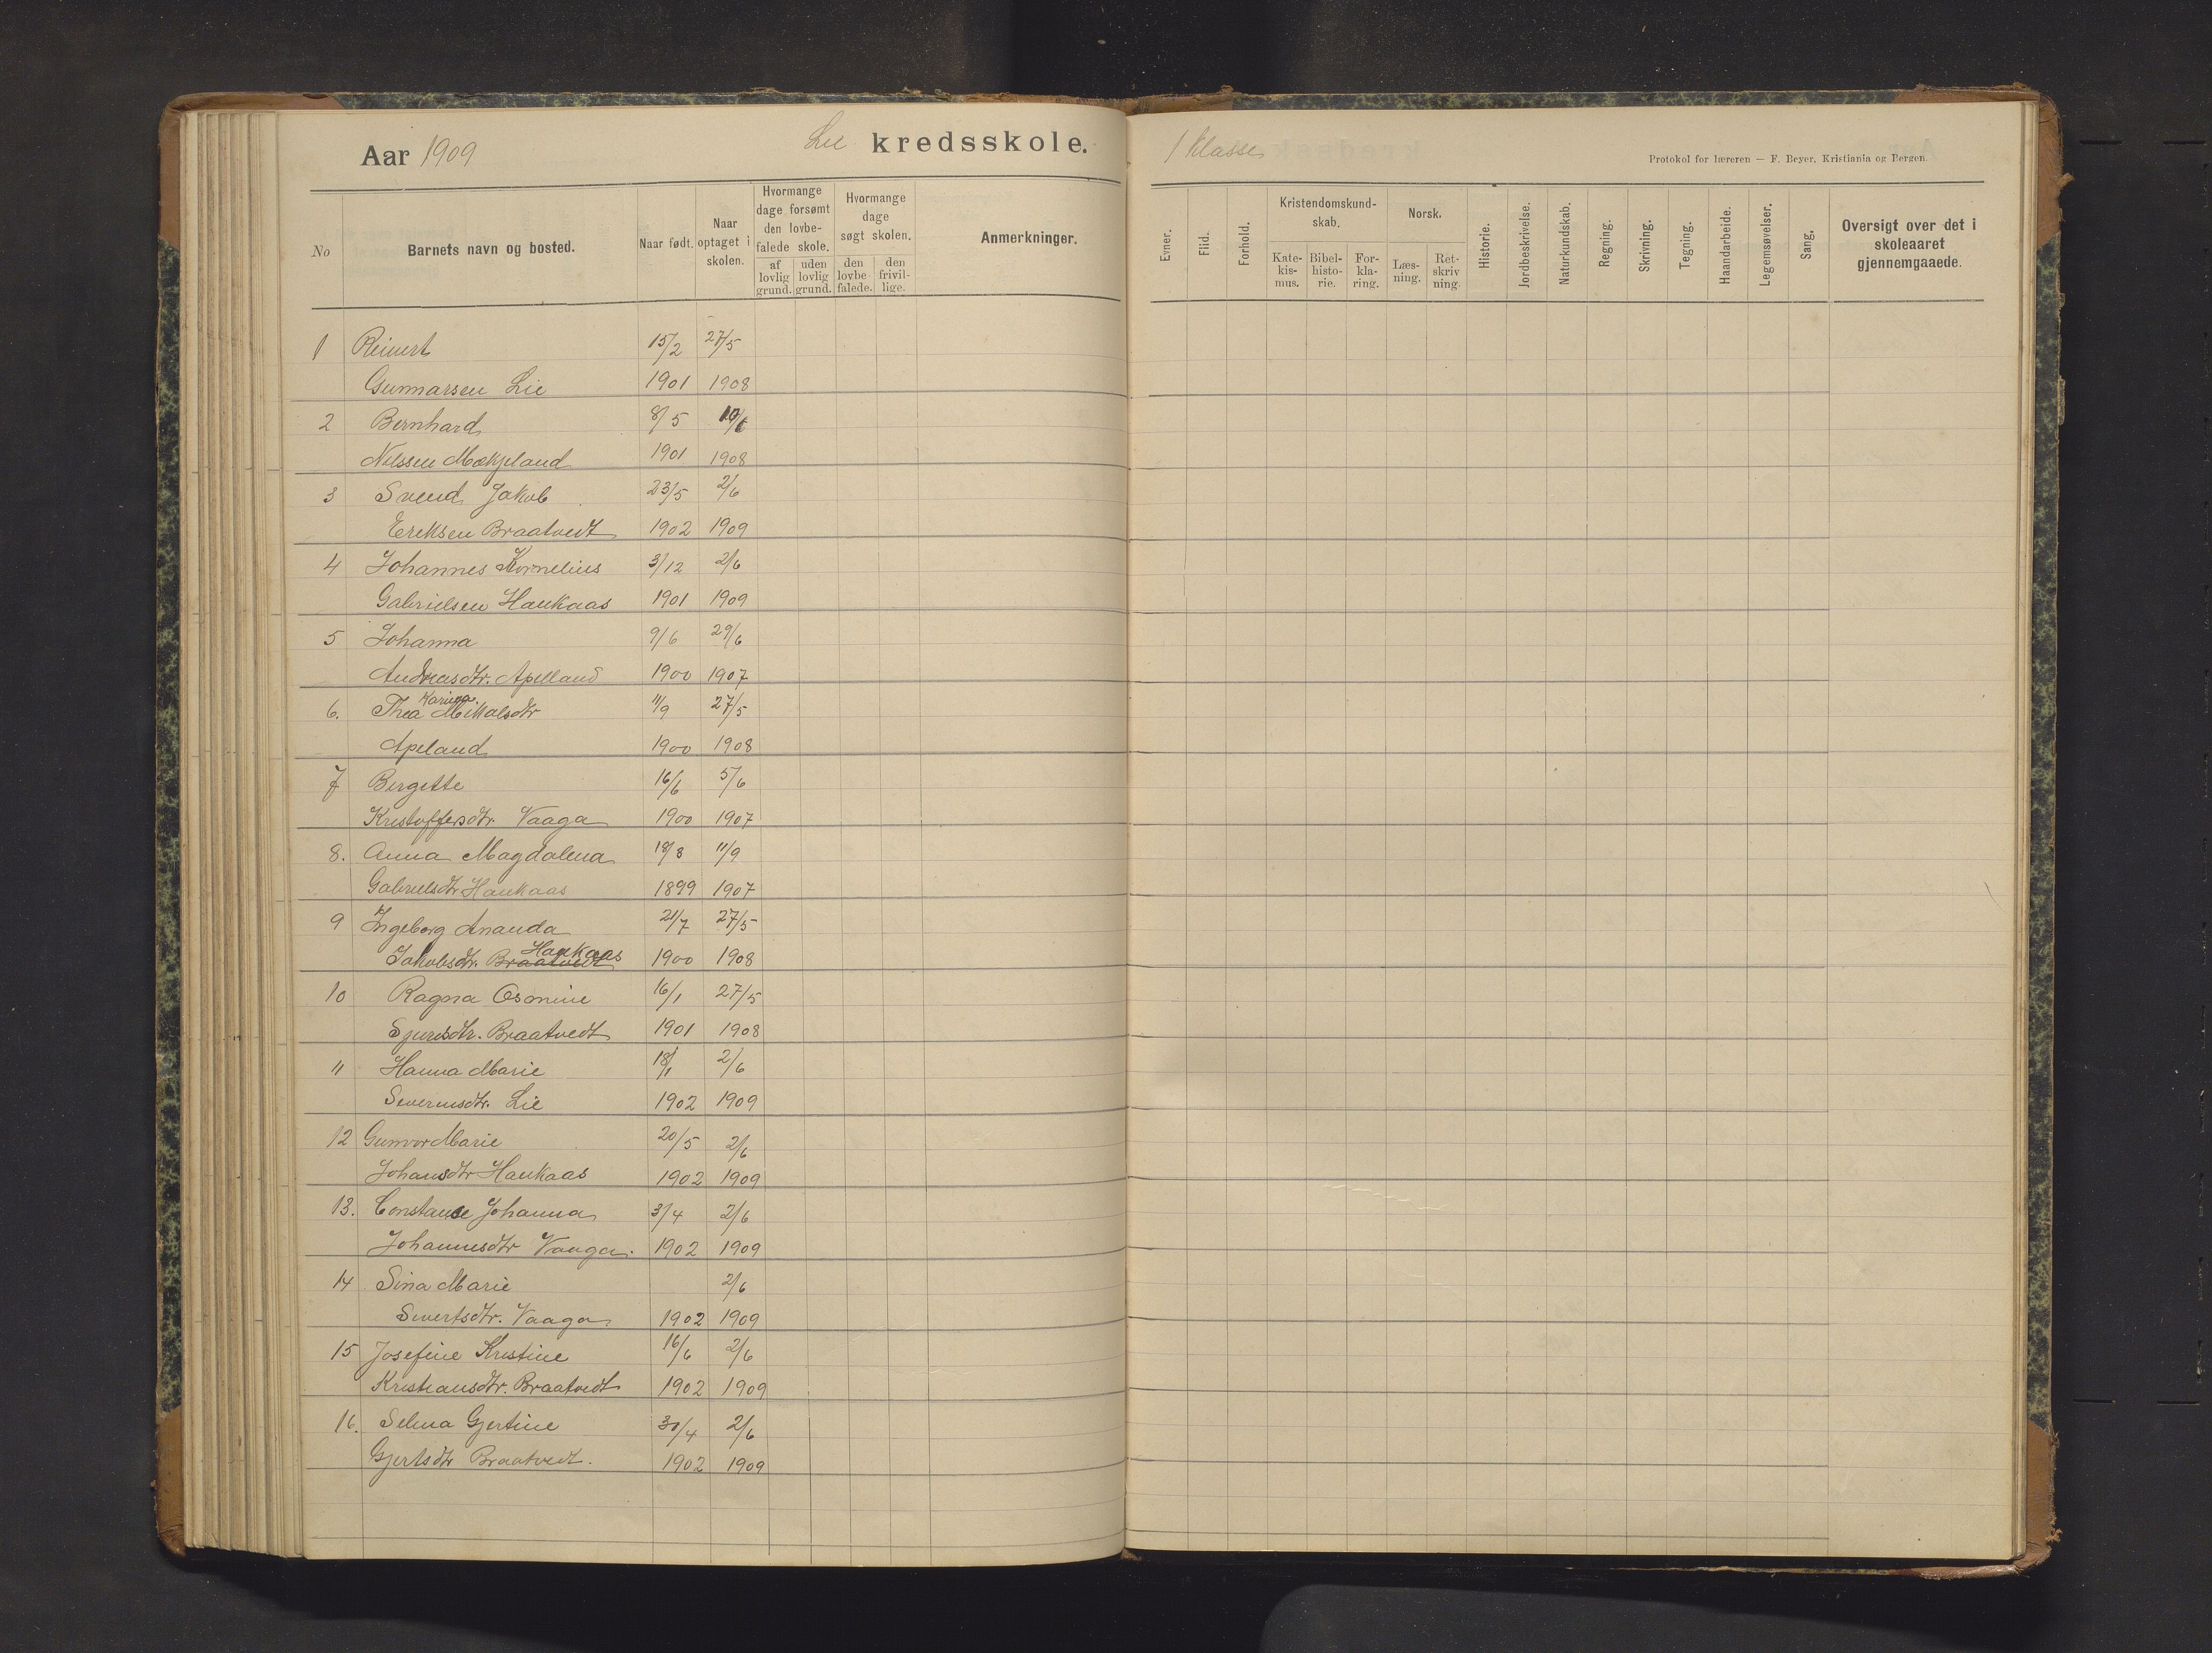 Aar 1909 Lie kredsskole. 1 Klasse
Protokol for læreren — F. Beyer, Kristiania og Bergen.
No Barnets navn og bosted. Naar født. Naar optaget i skolen. Hvormange dage forsømt den lovbefalede skole. af lovlig grund. uden lovlig grund. Hvormange dage søgt skolen. den lovbefalede. den frivillige. Anmerkninger. Evner. Flid. Forhold. Kristendomskundskab. Katekismus. Bibelhistorie. Forklaring. Norsk. Læsning. Retskrivning. Historie. Jordbeskrivelse. Naturkundskab. Regning. Skrivning. Tegning. Haandarbeide. Legemsøvelser. Sang. Oversigt over det i skoleaaret gjennemgaaede.
1 Reinert 15/2 27/5
Gunnarsen Lie 1901 1908
2 Bernhard 8/5 10/6
Nilssen Mækjeland 1901 1908
3 Svend Jakob 23/5 2/6
Eriksen Braatvedt 1902 1909
4 Johannes Kornelius 3/12 2/6
Gabrielsen Haukaas 1901 1909
5 Johanna 9/6 29/6
Andreasdtr. Apelland 1900 1907
6. Thea Karina Mikalsdtr 11/9 27/5
Apeland 1900 1908
7 Bergitte 16/6 5/6
Kristoffersdtr. Vaaga 1900 1907
8. Anna Magdalena 18/8 11/9
Gabrielsdtr Haukaas 1899 1907
9 Ingeborg Ananda 21/7 27/5
Jakobsdtr. Braatvedt Haukaas 1900 1908
10 Ragna Osmine 16/1 27/5
Sjursdtr. Braatvedt 1901 1908
11 Hanna Marie 18/1 2/6
Severinsdtr. Lie 1902 1909
12 Gunvor Marie 20/5 2/6
Johansdtr Haukaas 1902 1909
13. Constanse Johanna 3/4 2/6
Johannesdtr Vaaga. 1902 1909
14 Sina Marie 2/6
Sivertsdtr. Vaaga 1902 1909
15 Josefine Kristine 16/6 2/6
Kristiansdtr. Braatvedt 1902 1909
16. Selma Gjertine 30/4 2/6
Gjertsdtr Braatvedt. 1902 1909